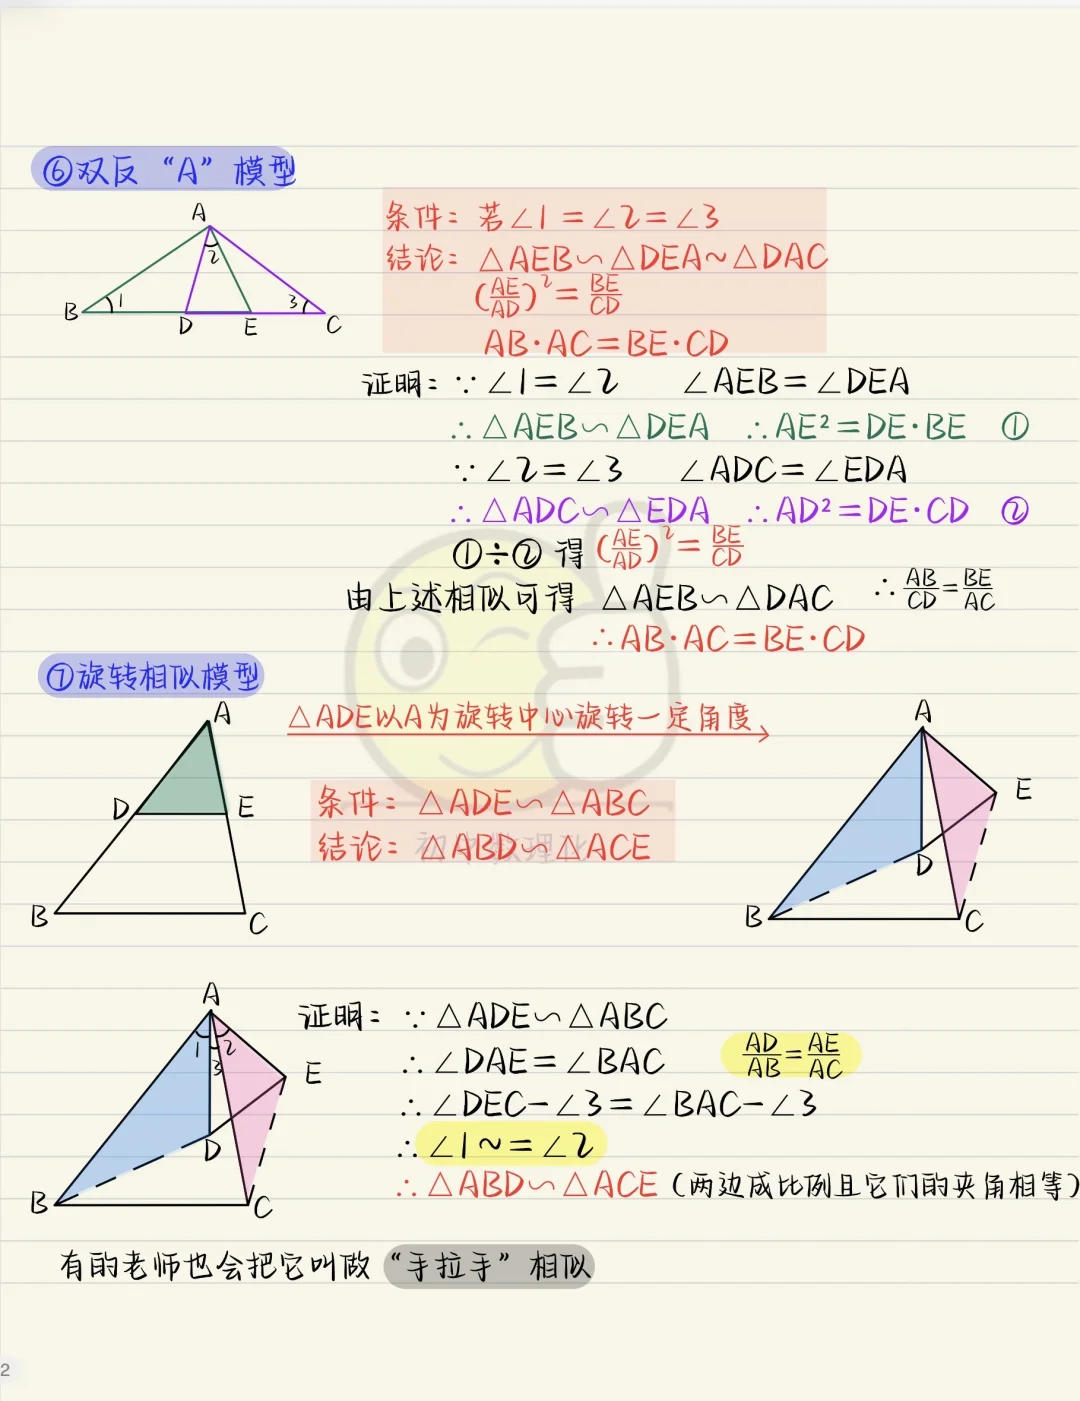 ⑥双反“A”模型
A
2
B
1
3
D
E
C
条件：若∠1=∠2=∠3
结论：△AEB∽△DEA~△DAC
(AE/AD)²=BE/CD
AB·AC=BE·CD
证明：∵∠1=∠2 ∠AEB=∠DEA
∴△AEB∽△DEA ∴AE²=DE·BE ①
∵∠2=∠3 ∠ADC=∠EDA
∴△ADC∽△EDA ∴AD²=DE·CD ②
①÷②得(AE/AD)²=BE/CD
由上述相似可得 △AEB∽△DAC ∴AB/CD=BE/AC
∴AB·AC=BE·CD
⑦旋转相似模型
△ADE以A为旋转中心旋转一定角度
A
D
E
B
C
条件：△ADE∽△ABC
结论：△ABD∽△ACE
初中数理化
A
E
D
B
C
A
1
2
3
E
D
B
C
证明：∵△ADE∽△ABC
∴∠DAE=∠BAC AD/AB=AE/AC
∴∠DEC-∠3=∠BAC-∠3
∴∠1~=∠2
∴△ABD∽△ACE（两边成比例且它们的夹角相等）
有的老师也会把它叫做“手拉手”相似
2